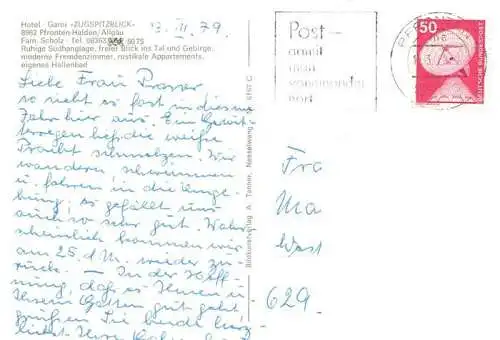 Hotel - Garni »ZUGSPITZBLICK«
8962 Pfronten-Halden/Allgäu
Fam. Scholz · Tel. 08363 5075
Ruhige Südhanglage, freier Blick ins Tal und Gebirge,
moderne Fremdenzimmer, rustikale Appartements,
eigenes Hallenbad
13. III. 79
Liebe Frau
so sieht es fast in diesem
Jahr hier aus. Ein Gewitter-
regen ließ die weiße
Pracht schmelzen. Wir
wandern, schwimmen
u. fahren in die Umge-
bung; es gefällt uns
auch so sehr gut. Wahr-
scheinlich kommen wir
am 25. d. M. wieder zu-
rück. – In der Hoff-
nung, daß es Ihnen u.
Ihrem Gatten gut geht
grüßen Sie beide herz-
lichst Ihre
Bildkunstverlag A. Tanner, Nesselwang
Post –
damit
man
voneinander
hört
PFRON
50
DEUTSCHE BUNDESPOST
Fra
Ma
West
629